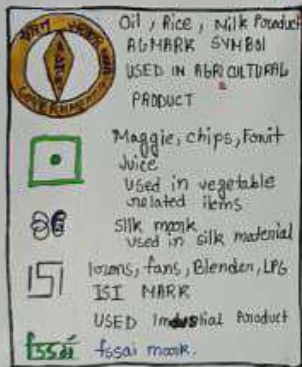 Oil, Rice, Milk Product
AGMARK SYMBOl
USED IN AGRICULTURAL
PRODUCT
Maggie, chips, Fruit
Juice
Used in vegetable
related items
silk mark
used in silk material
Irons, fans, Blender, LPG
ISI
ISI MARK
USED Industial Product
fssai
fssai mark.